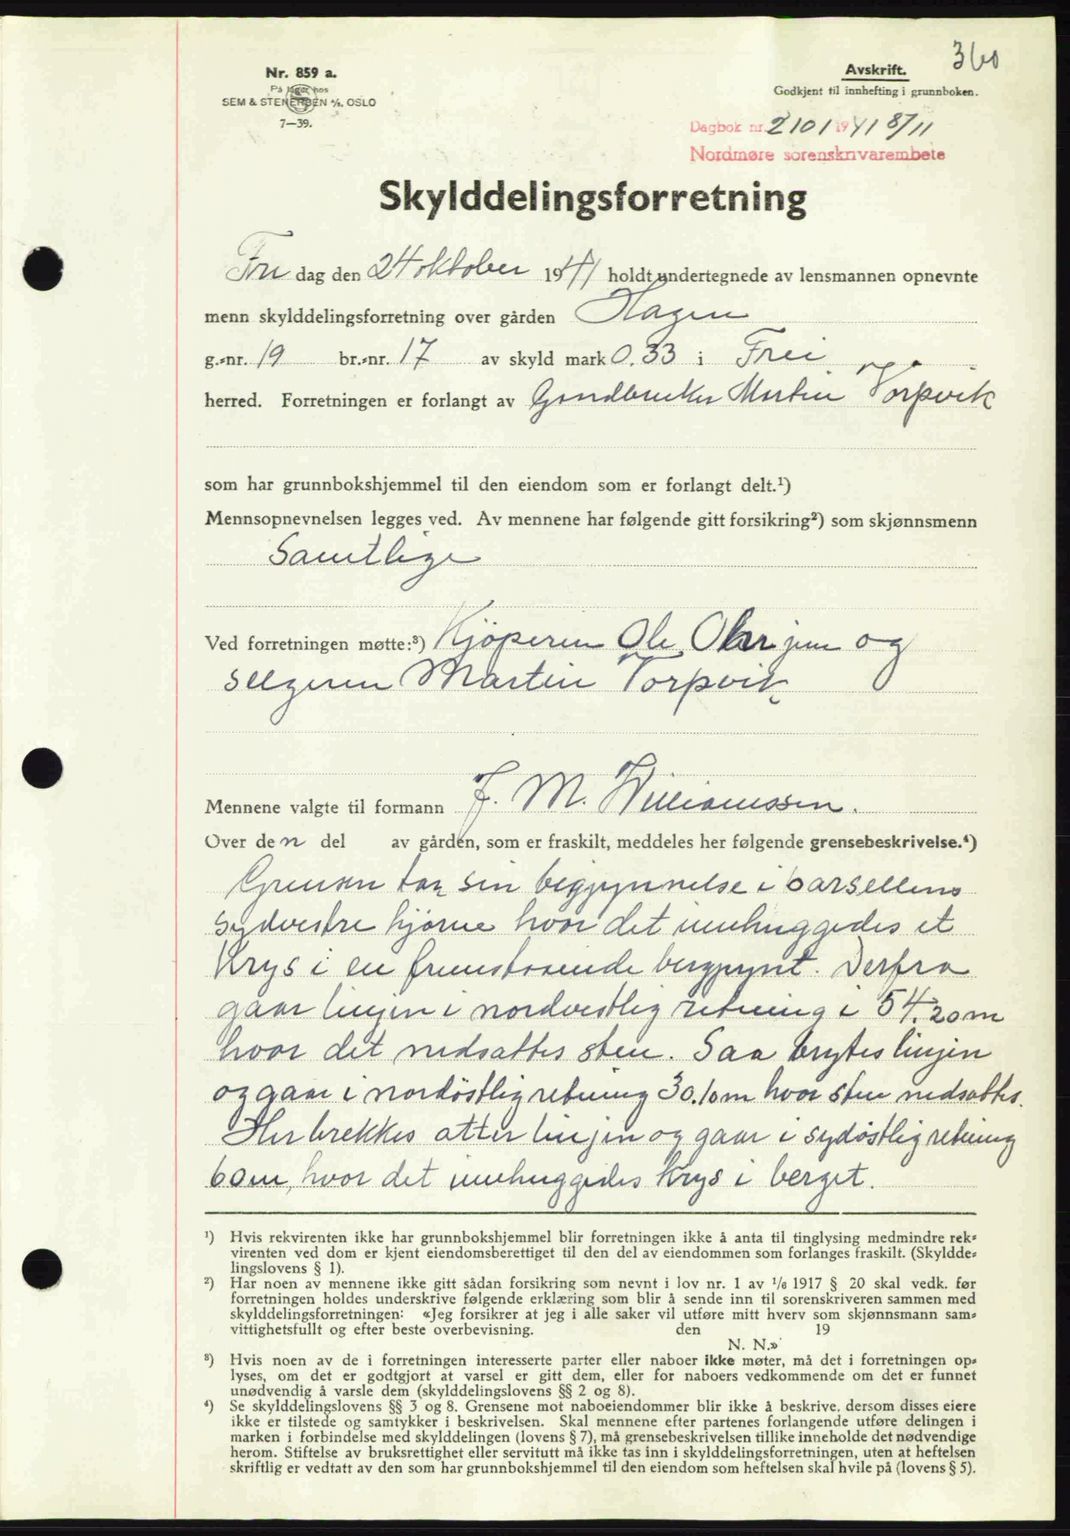 360
Nr. 859 a.
På lager hos
SEM & STENERSEN A/S, OSLO
7—39.
Avskrift.
Godkjent til innhefting i grunnboken.
Dagbok nr. 2101 1941 8/11
Nordmøre sorenskrivarembete
Skylddelingsforretning
Fre dag den 24 oktober 1941 holdt undertegnede av lensmannen opnevnte
menn skylddelingsforretning over gården Hagen
g.-nr. 19 br.-nr. 17 av skyld mark 0.33 i Frei
herred. Forretningen er forlangt av Gardbruker Martin Torpvik
som har grunnbokshjemmel til den eiendom som er forlangt delt.¹)
Mennsopnevnelsen legges ved. Av mennene har følgende gitt forsikring²) som skjønnsmenn
Samtlige
Ved forretningen møtte:³) Kjöperen Ole jun og
selgeren Martin Torpvik
Mennene valgte til formann J. M. Williamssen.
Over den del av gården, som er fraskilt, meddeles her følgende grensebeskrivelse.⁴)
Grensen tar sin begynnelse i parsellens
sydvestre hjørne hvor det innhuggedes et
Krys i en fremstaaende bergpynt. Derfra
gaar linjen i nordvestlig retning i 54.20 m
hvor det nedsattes sten. Saa brytes linjen
og gaar i nordöstlig retning 30.10 m hvor sten nedsattes.
Her brekkes atter linjen og gaar i sydöstlig retning
60 m, hvor det innhuggedes Krys i berget.
¹) Hvis rekvirenten ikke har grunnbokshjemmel blir forretningen ikke å anta til tinglysing medmindre rek-
virenten ved dom er kjent eiendomsberettiget til den del av eiendommen som forlanges fraskilt. (Skyldde-
lingslovens § 1).
²) Har noen av mennene ikke gitt sådan forsikring som nevnt i lov nr. 1 av 1/6 1917 § 20 skal vedk. før
forretningen holdes underskrive følgende erklæring som blir å sende inn til sorenskriveren sammen med
skylddelingsforretningen: «Jeg forsikrer at jeg i alle saker vil utføre mitt hverv som skjønnsmann sam-
vittighetsfullt og efter beste overbevisning. den 19
N. N.»
³) Hvis noen av de i forretningen interesserte parter eller naboer ikke møter, må det i forretningen op-
lyses, om det er godtgjort at varsel er gitt dem, eller for naboers vedkommende om det er funnet
unødvendig å varsle dem (skylddelingslovens §§ 2 og 8).
⁴) Se skylddelingslovens §§ 3 og 8. Grensene mot naboeiendommer blir ikke å beskrive, dersom disses eiere
ikke er tilstede og samtykker i beskrivelsen. Skal mennene efter partenes forlangende utføre delingen i
marken i forbindelse med skylddelingen (lovens § 7), må grensebeskrivelsen tillike inneholde det nødvendige
herom. Stiftelse av bruksrettighet eller servitutt må ikke tas inn i skylddelingsforretningen, uten at heftelsen
skriftlig er vedtatt av den som har grunnbokshjemmel til den eiendom som heftelsen skal hvile på (lovens § 5).